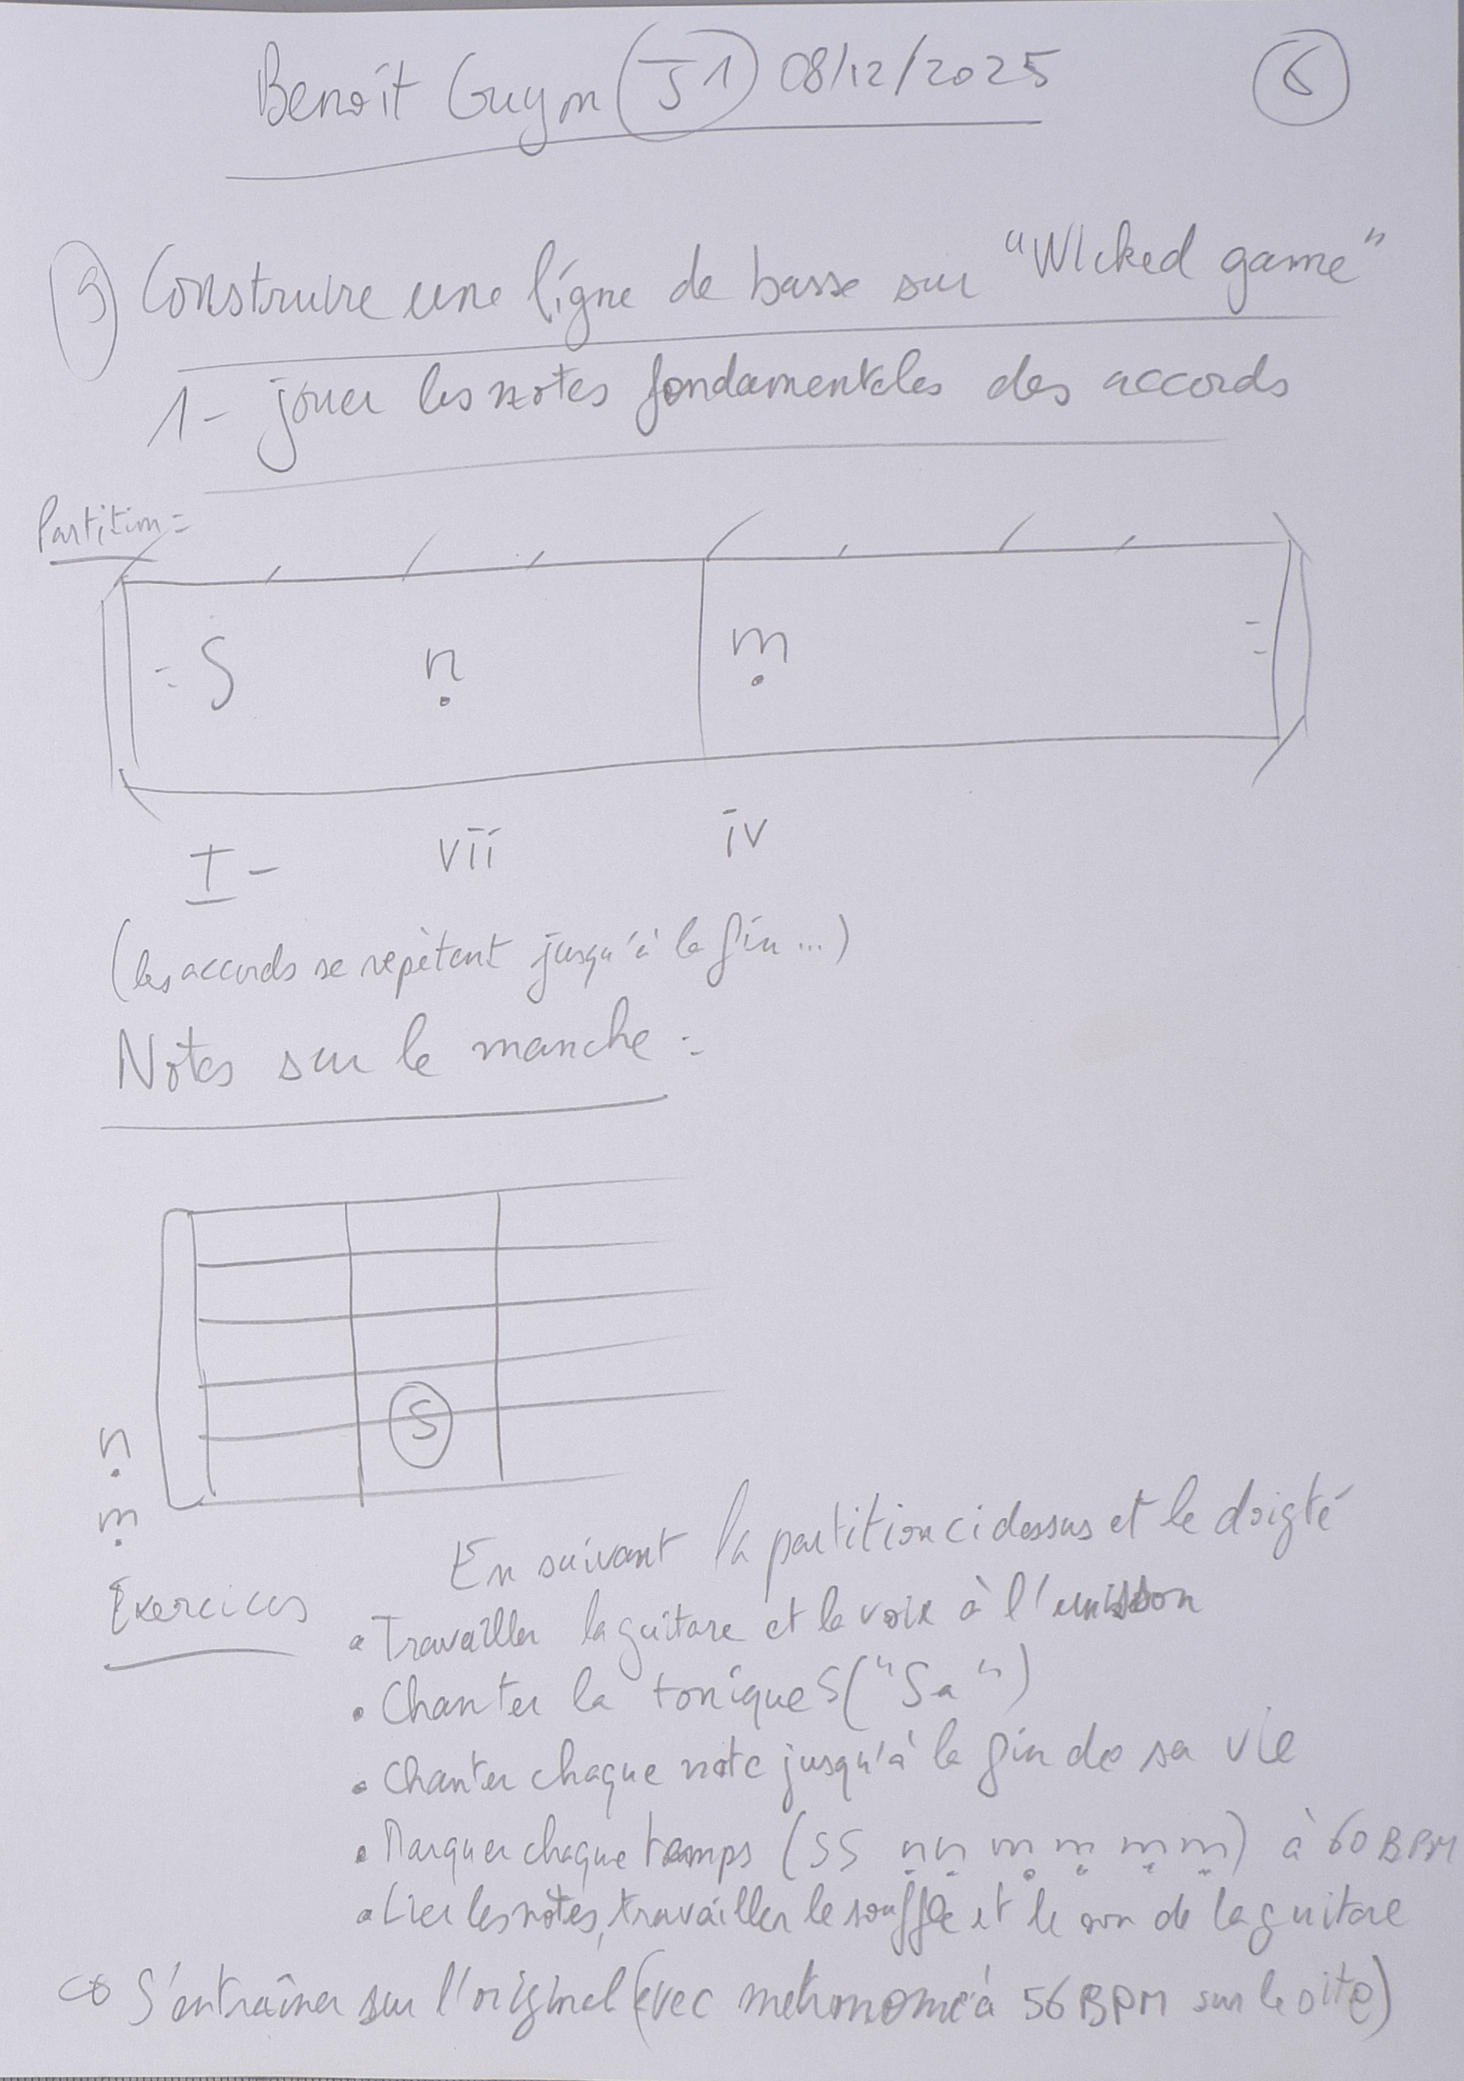 Benoît Guyon J1 08/12/2025 6
3 Construire une ligne de basse sur "Wicked game"
1- jouer les notes fondamentales des accords
Partition =
: S ṇ ṃ :
I- vii iv
(les accords se répètent jusqu'à la fin...)
Notes sur le manche :
S
ṇ
ṃ
En suivant la partition ci dessus et le doigté
Exercices
• Travailler la guitare et la voix à l'unisson
• Chanter la tonique S ("Sa")
• Chanter chaque note jusqu'à la fin de sa vie
• Marquer chaque temps (SS ṇ ṇ ṃ ṃ ṃ ṃ) à 60 BPM
• Lier les notes, travailler le souffle et le son de la guitare
S'entraîner sur l'original (avec métronome à 56 BPM sur le site)